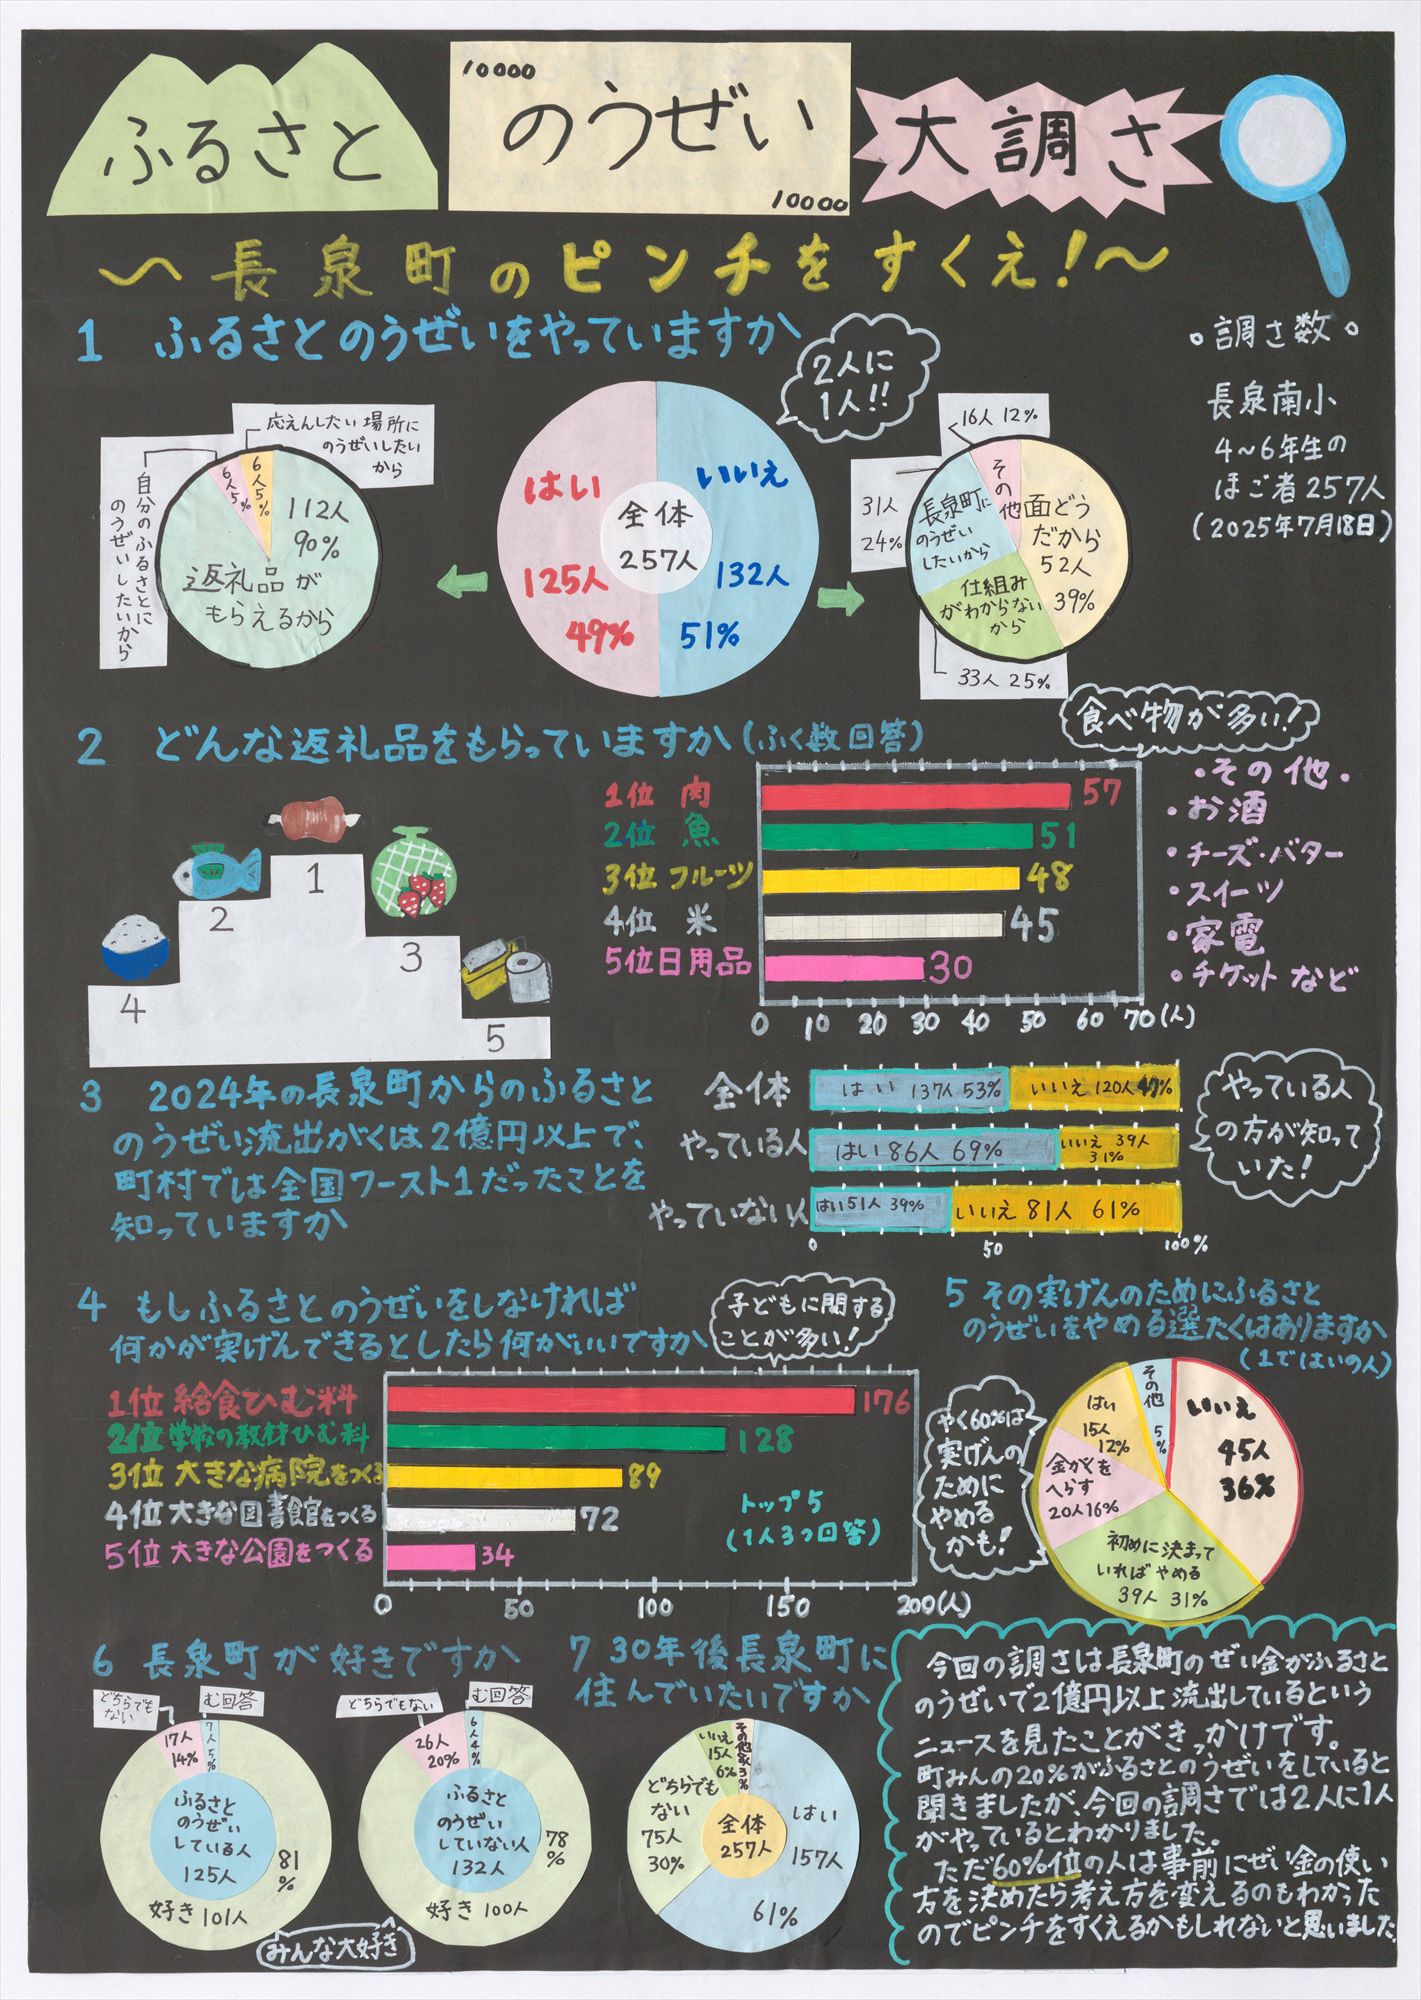 ふるさと
10000
のうぜい
10000
大調さ
～長泉町のピンチをすくえ!～
1 ふるさとのうぜいをやっていますか
2人に
1人!!
。調さ数。
長泉南小
4～6年生の
ほご者257人
(2025年7月18日)
応えんしたい場所に
のうぜいしたい
から
自分のふるさとに
のうぜいしたいから
6人5%
6人5%
112人
90%
返礼品が
もらえるから
はい
125人
49%
全体
257人
いいえ
132人
51%
16人 12%
その他
31人
24%
長泉町に
のうぜい
したいから
面どう
だから
52人
39%
仕組み
がわからない
から
33人 25%
2 どんな返礼品をもらっていますか(ふく数回答)
食べ物が多い!
1
2
3
4
5
1位 肉 57
2位 魚 51
3位 フルーツ 48
4位 米 45
5位 日用品 30
0 10 20 30 40 50 60 70(人)
・その他・
・お酒
・チーズ・バター
・スイーツ
・家電
・チケットなど
3 2024年の長泉町からのふるさと
のうぜい流出がくは2億円以上で、
町村では全国ワースト1だったことを
知っていますか
全体 はい 137人 53% いいえ 120人 47%
やっている人 はい 86人 69% いいえ 39人 31%
やっていない人 はい 51人 39% いいえ 81人 61%
0 50 100%
やっている人
の方が知って
いた!
4 もしふるさとのうぜいをしなければ
何かが実げんできるとしたら何がいいですか
子どもに関する
ことが多い!
1位 給食ひむ料 176
2位 学校の教材ひむ料 128
3位 大きな病院をつくる 89
4位 大きな図書館をつくる 72
5位 大きな公園をつくる 34
トップ5
(1人3つ回答)
0 50 100 150 200(人)
5 その実げんのためにふるさと
のうぜいをやめる選たくはありますか
(1ではいの人)
やく60%は
実げんの
ために
やめる
かも!
その他
5%
いいえ
45人
36%
はい
15人
12%
金がくを
へらす
20人16%
初めに決まって
いればやめる
39人 31%
6 長泉町が好きですか
どちらでも
ない
む回答
17人
14%
7人5%
ふるさと
のうぜい
している人
125人
81%
好き 101人
どちらでもない
む回答
26人
20%
6人4%
ふるさと
のうぜい
していない人
132人
78%
好き 100人
みんな大好き
7 30年後長泉町に
住んでいたいですか
いいえ
15人
6%
どちらでも
ない
75人
30%
全体
257人
はい
157人
61%
今回の調さは長泉町のぜい金がふるさと
のうぜいで2億円以上流出しているという
ニュースを見たことがきっかけです。
町みんの20%がふるさとのうぜいをしていると
聞きましたが、今回の調さでは2人に1人
がやっているとわかりました。
ただ60%位の人は事前にぜい金の使い
方を決めたら考え方を変えるのもわかった
のでピンチをすくえるかもしれないと思いました。